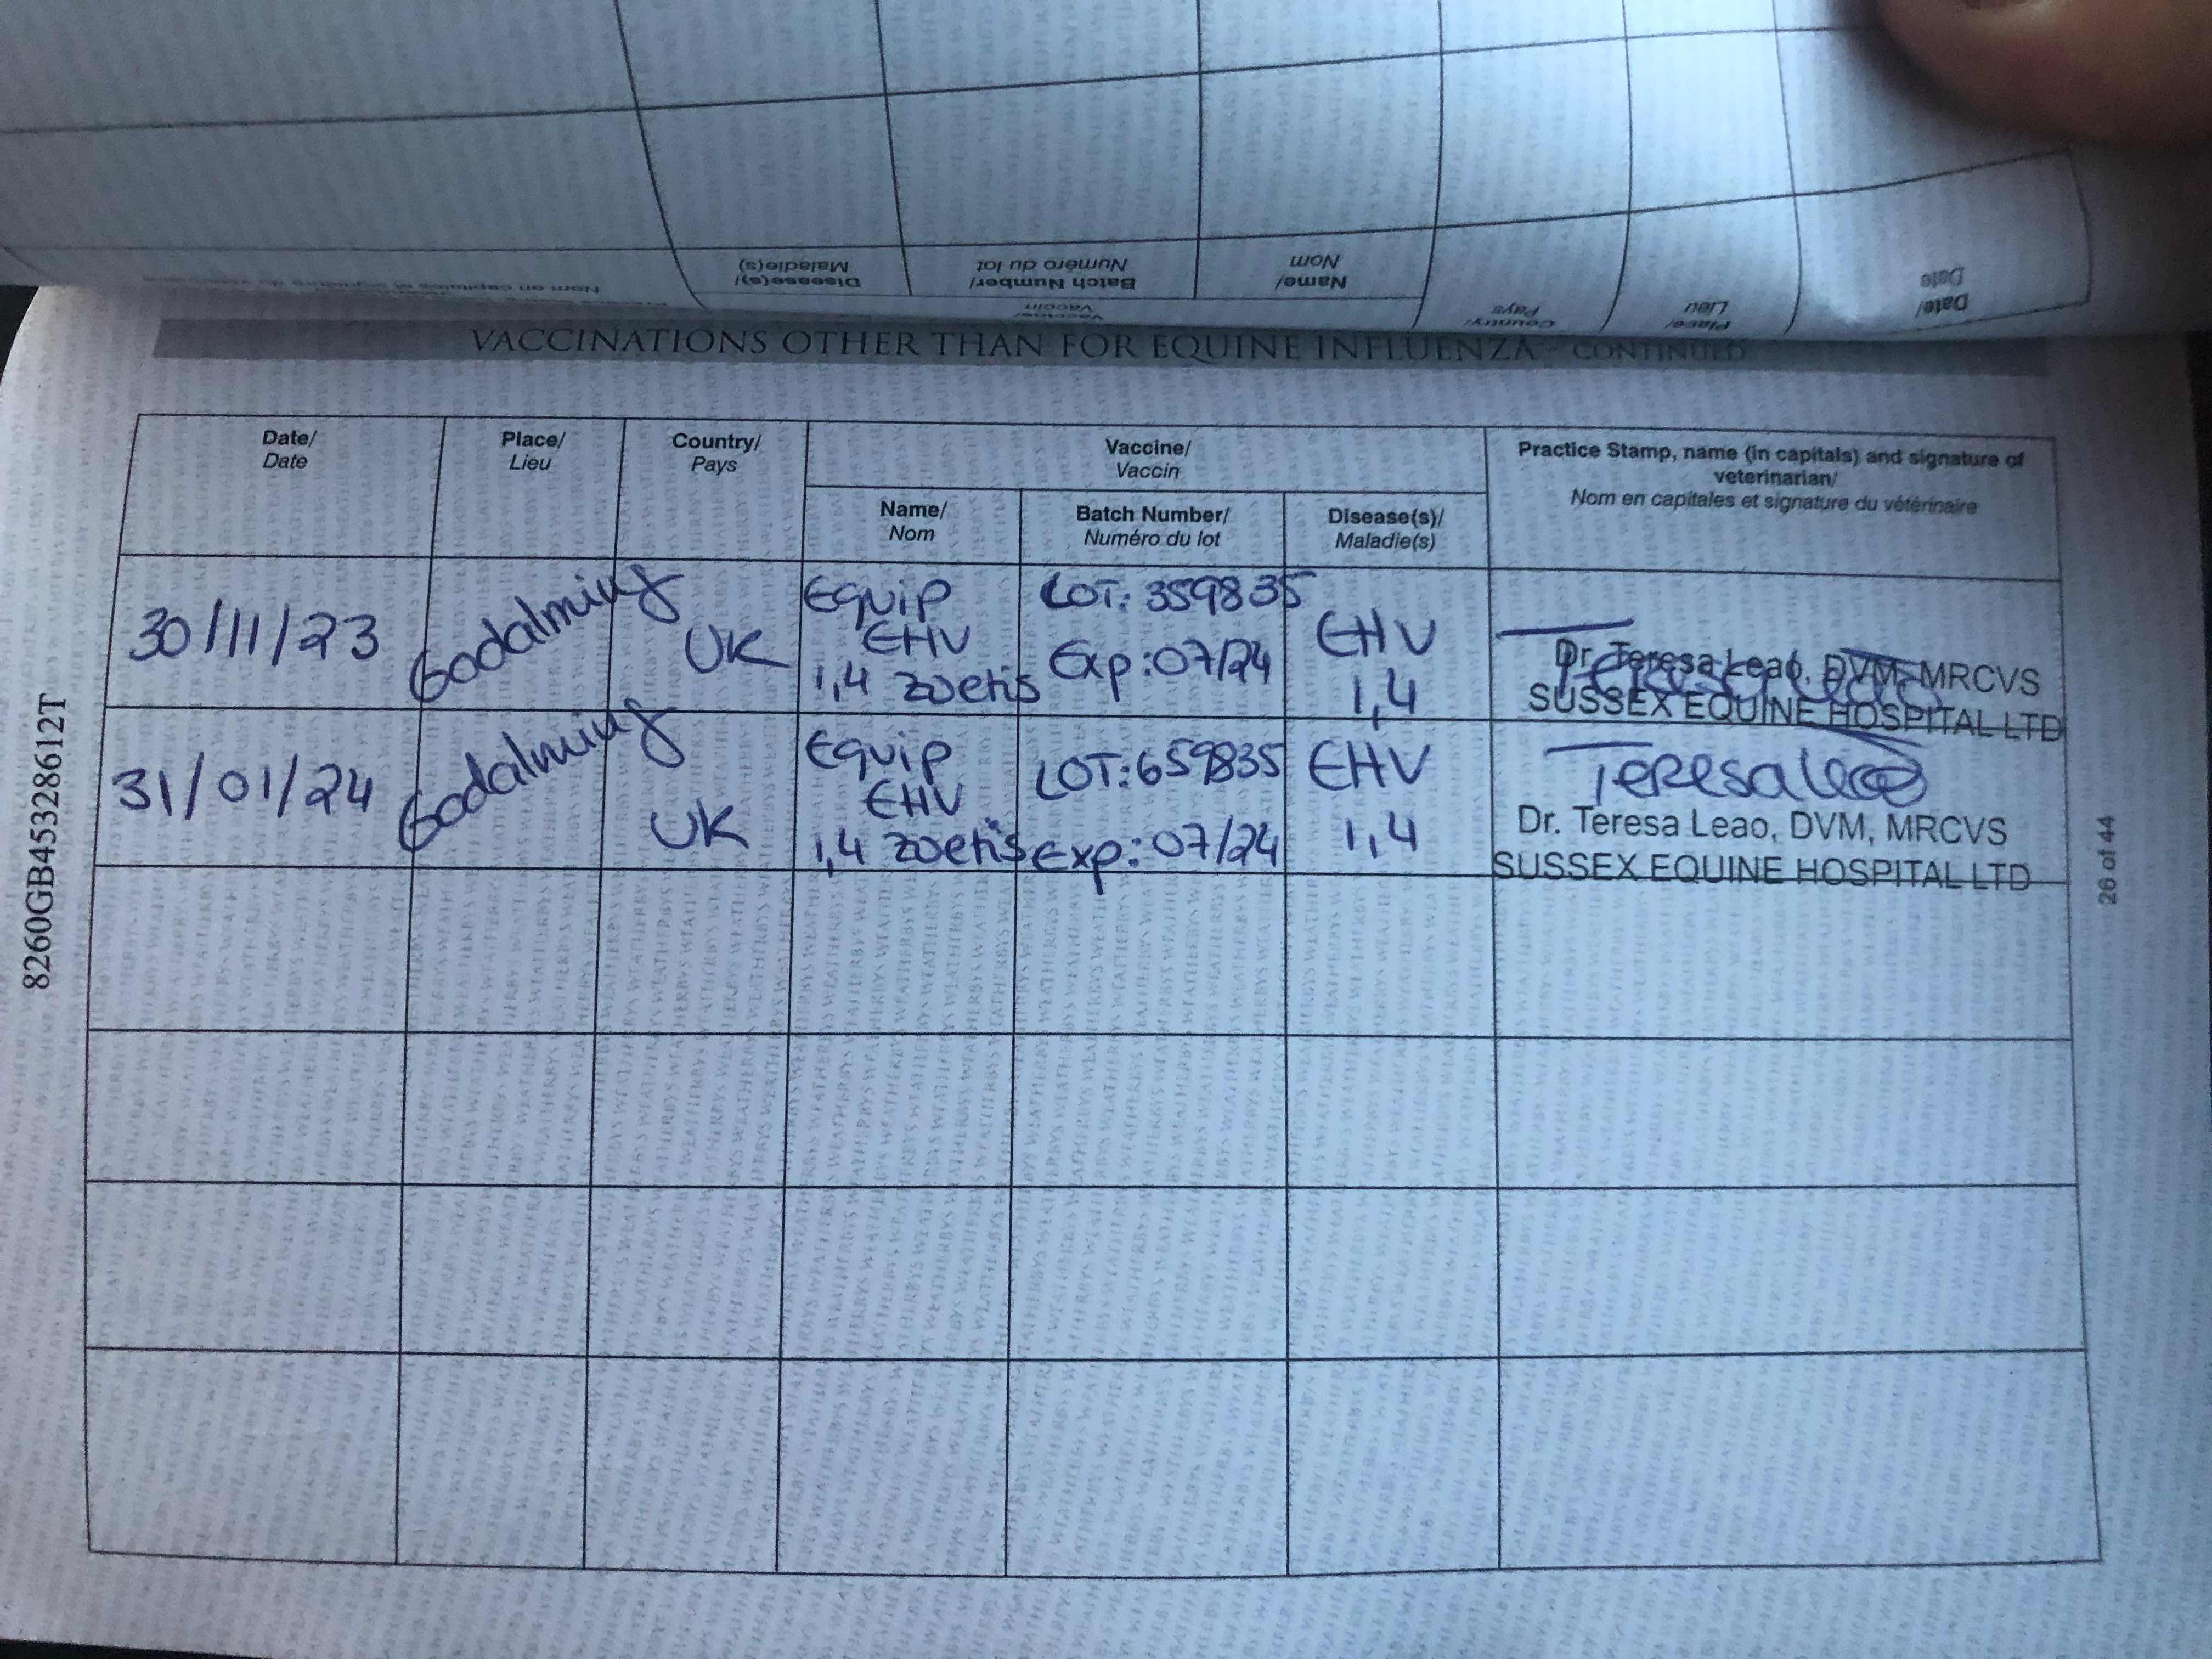 Date/
Date
Place/
Lieu
Country/
Pays
Vaccine/
Vaccin
Name/
Nom
Batch Number/
Numéro du lot
Disease(s)/
Maladie(s)
Nom en capitales et signature du vétérinaire
VACCINATIONS OTHER THAN FOR EQUINE INFLUENZA - CONTINUED
Date/
Date
Place/
Lieu
Country/
Pays
Vaccine/
Vaccin
Name/
Nom
Batch Number/
Numéro du lot
Disease(s)/
Maladie(s)
Practice Stamp, name (in capitals) and signature of
veterinarian/
Nom en capitales et signature du vétérinaire
30/11/23
Godalming
UK
Equip
EHV
1,4 zoetis
LOT: 359835
Exp: 07/24
EHV
1,4
Dr. Teresa Leao, DVM, MRCVS
SUSSEX EQUINE HOSPITAL LTD
31/01/24
Godalming
UK
Equip
EHV
1,4 zoetis
LOT: 659835
Exp: 07/24
EHV
1,4
Teresa Leao
Dr. Teresa Leao, DVM, MRCVS
SUSSEX EQUINE HOSPITAL LTD
8260GB45328612T
26 of 44